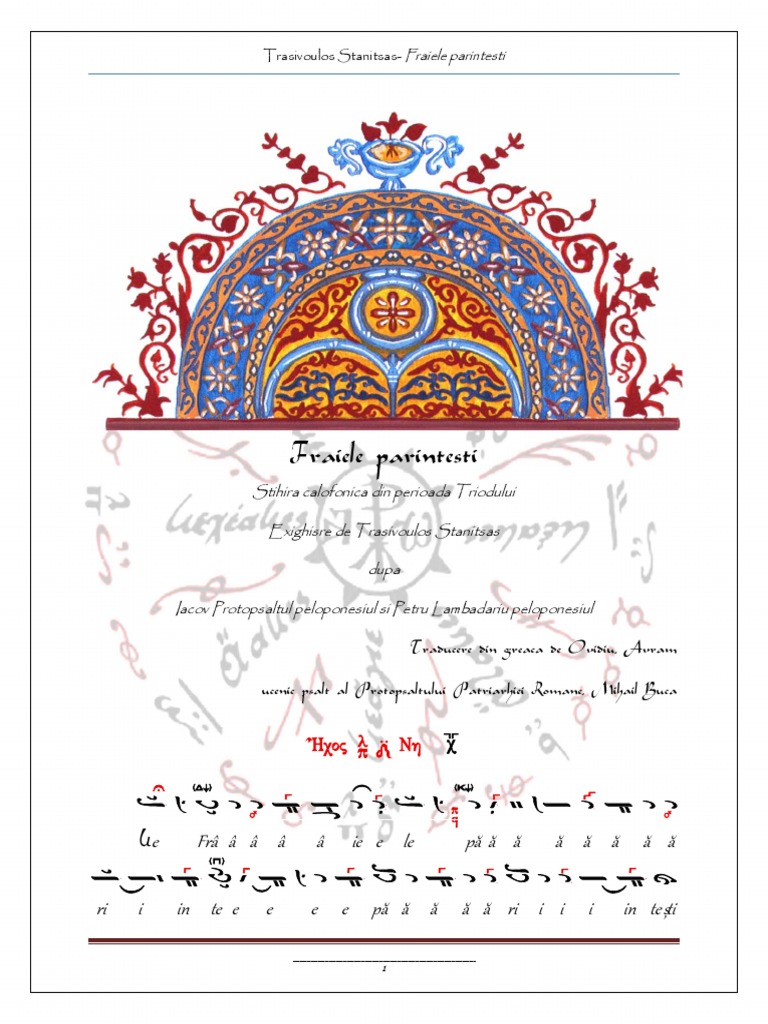 Trasivoulos Stanitsas- Fraiele parintesti
Fraiele parintesti
Stihira calofonica din perioada Triodului
Exighisre de Trasivoulos Stanitsas
dupa
Iacov Protopsaltul peloponesiul si Petru Lambadariu peloponesiul
Traducere din greaca de Ovidiu, Avram
ucenic psalt al Protopsaltului Patriarhiei Romane, Mihail Buca
Ἦχος λ π Νη
e Frâ â â â â ie e le pă ă ă ă ă ă ă ă
ri i in te e e e e pă ă ă ă ă ri i i i in tești
1